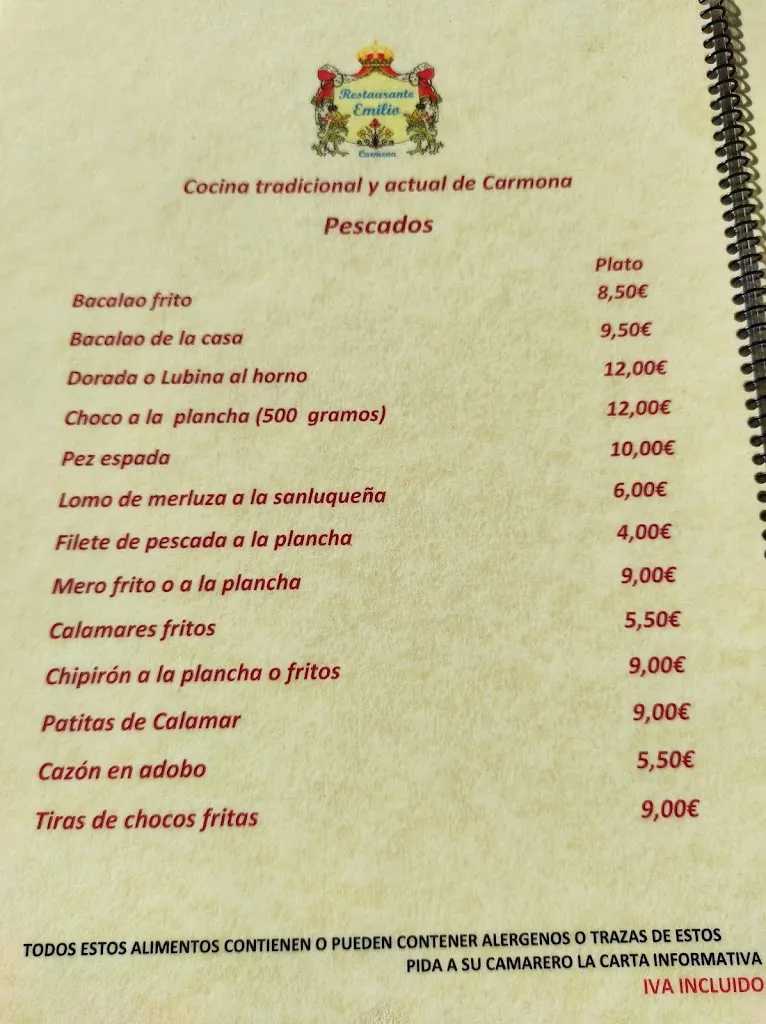 Restaurante
Emilio
Carmona
Cocina tradicional y actual de Carmona
Pescados
Plato
Bacalao frito 8,50€
Bacalao de la casa 9,50€
Dorada o Lubina al horno 12,00€
Choco a la plancha (500 gramos) 12,00€
Pez espada 10,00€
Lomo de merluza a la sanluqueña 6,00€
Filete de pescada a la plancha 4,00€
Mero frito o a la plancha 9,00€
Calamares fritos 5,50€
Chipirón a la plancha o fritos 9,00€
Patitas de Calamar 9,00€
Cazón en adobo 5,50€
Tiras de chocos fritas 9,00€
TODOS ESTOS ALIMENTOS CONTIENEN O PUEDEN CONTENER ALERGENOS O TRAZAS DE ESTOS
PIDA A SU CAMARERO LA CARTA INFORMATIVA
IVA INCLUIDO